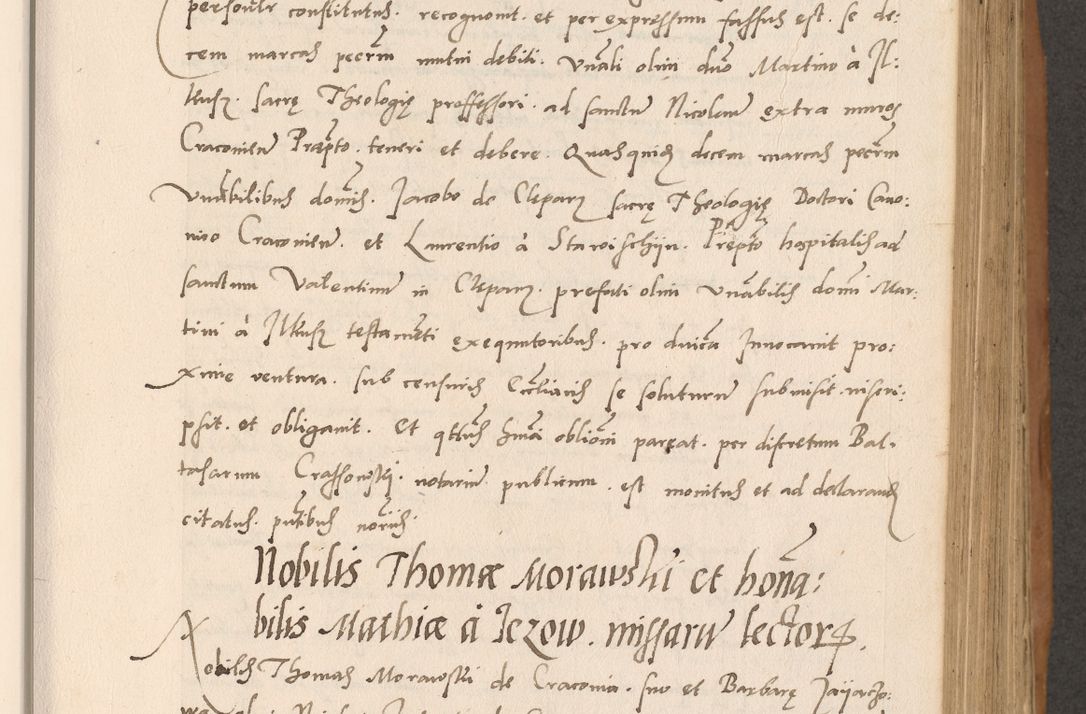 personalr constitutus. recognouit. et per expressum fassus est. se de:
cem marcas pecrm mutui debiti. Vnali olim duo Martino à Il:
kusz. sacrę Theologię proffessori. ad sanctum Nicolaum extra muros
Cracoviem Praepto. teneri et debere. Quasquidem decem marcas pecrm
Vnabilibus domis. Jacobo de Clepary sacrę Theologię Doctori Cano:
nico Cracovien. et Laurentio à Starischijn. Praepto hospitalis ad
sanctum Valentinum in Clepary. prefati olim Vnabilis domi Mar:
tini à Ilkusz testamēti exequutoribus. pro duica Innocauit pro:
xime ventura. sub censuris Ecclianis se soluturum submisit. inscri:
psit. et obligauit. Et qtlus hmōi obliōni pareat. per discretum Bal.
tasarum Crassowski. notarium publicum. est monitus et ad declarand
citatus. pntibus noriis.
Nobilis Thomæ Morawski et honā:
bilis Mathiæ à Jezow. missarum lector.
Nobilis Thomas Morawski de Cracouia. suo et Barbarę